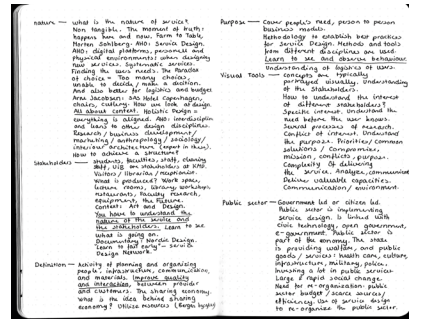 nature — what is the nature of service?
Non tangible. The moment of truth:
happens here and now. Farm to Table,
AHO: Service Design.
AHO: digital platforms, personnel and
physical environments when designing
new services. Systematic services.
Finding the users needs. The Paradox
of choice = Too many choices,
unable to decide / make a decision.
And also better for logistics and budget.
Arne Jacobsen: SAS Hotel Copenhagen,
chairs, cutlery. How we look at design
All about context. Holistic Design =
everything is aligned. AHO: interdisciplin
and loans to other design disciplines.
Research / business development /
marketing / anthropology / sociology /
interior architecture (expert in these).
How to achieve a structure?
Stakeholders — students, faculties, staff, cleaning
staff, stakeholders at KHIO.
Visitors / librarian / receptionist.
What is produced? Work space,
lecture rooms, library, workshops,
restaurants, faculty research,
equipment, the future.
Context: Art and Design.
You have to understand the
nature of the service and
the stakeholders. Learn to see
what is going on.
Documentary: Nordic Design.
"Learn to fail early" - Service
Design Network.
Definition — Activity of planning and organizing
people, infrastructure, communication,
and materials. Improve quality
and interaction, between provider
and customers. The sharing economy.
What is the idea behind sharing
economy? Utilize resources
Purpose — Cover people's need, person to person
business models.
Methodology to establish best practices
for Service Design. Methods and tools
from different disciplines are used.
Learn to see and observe behaviour.
Understanding of logistics of users.
Visual Tools — concepts are typically
portrayed visually. Understanding
of the stakeholders.
How to understand the interest
of different stakeholders?
Specific interest. Understand the
need before the user knows.
Several processes of research.
Conflict of interest. Understand
the purpose. Priorities / common
solutions / Compromise,
mission, conflicts, purpose.
Complexity of delivering
the service. Analyze, communicate
Deliver valuable capacities.
Communication / environment.
Public sector — Government led or citizen led.
Public sector is implementing
service design, is linked with
civic technology, open government,
e-government. Public sector is
part of the economy. The state
is providing welfare, and public
goods / services: health care, culture,
infrastructure, military, police,
nursing a lot in public services.
Large / rapid social change.
Need for re-organization: public
sector budget / scarce sources /
efficiency. Use of service design
to re-organize the public sector.